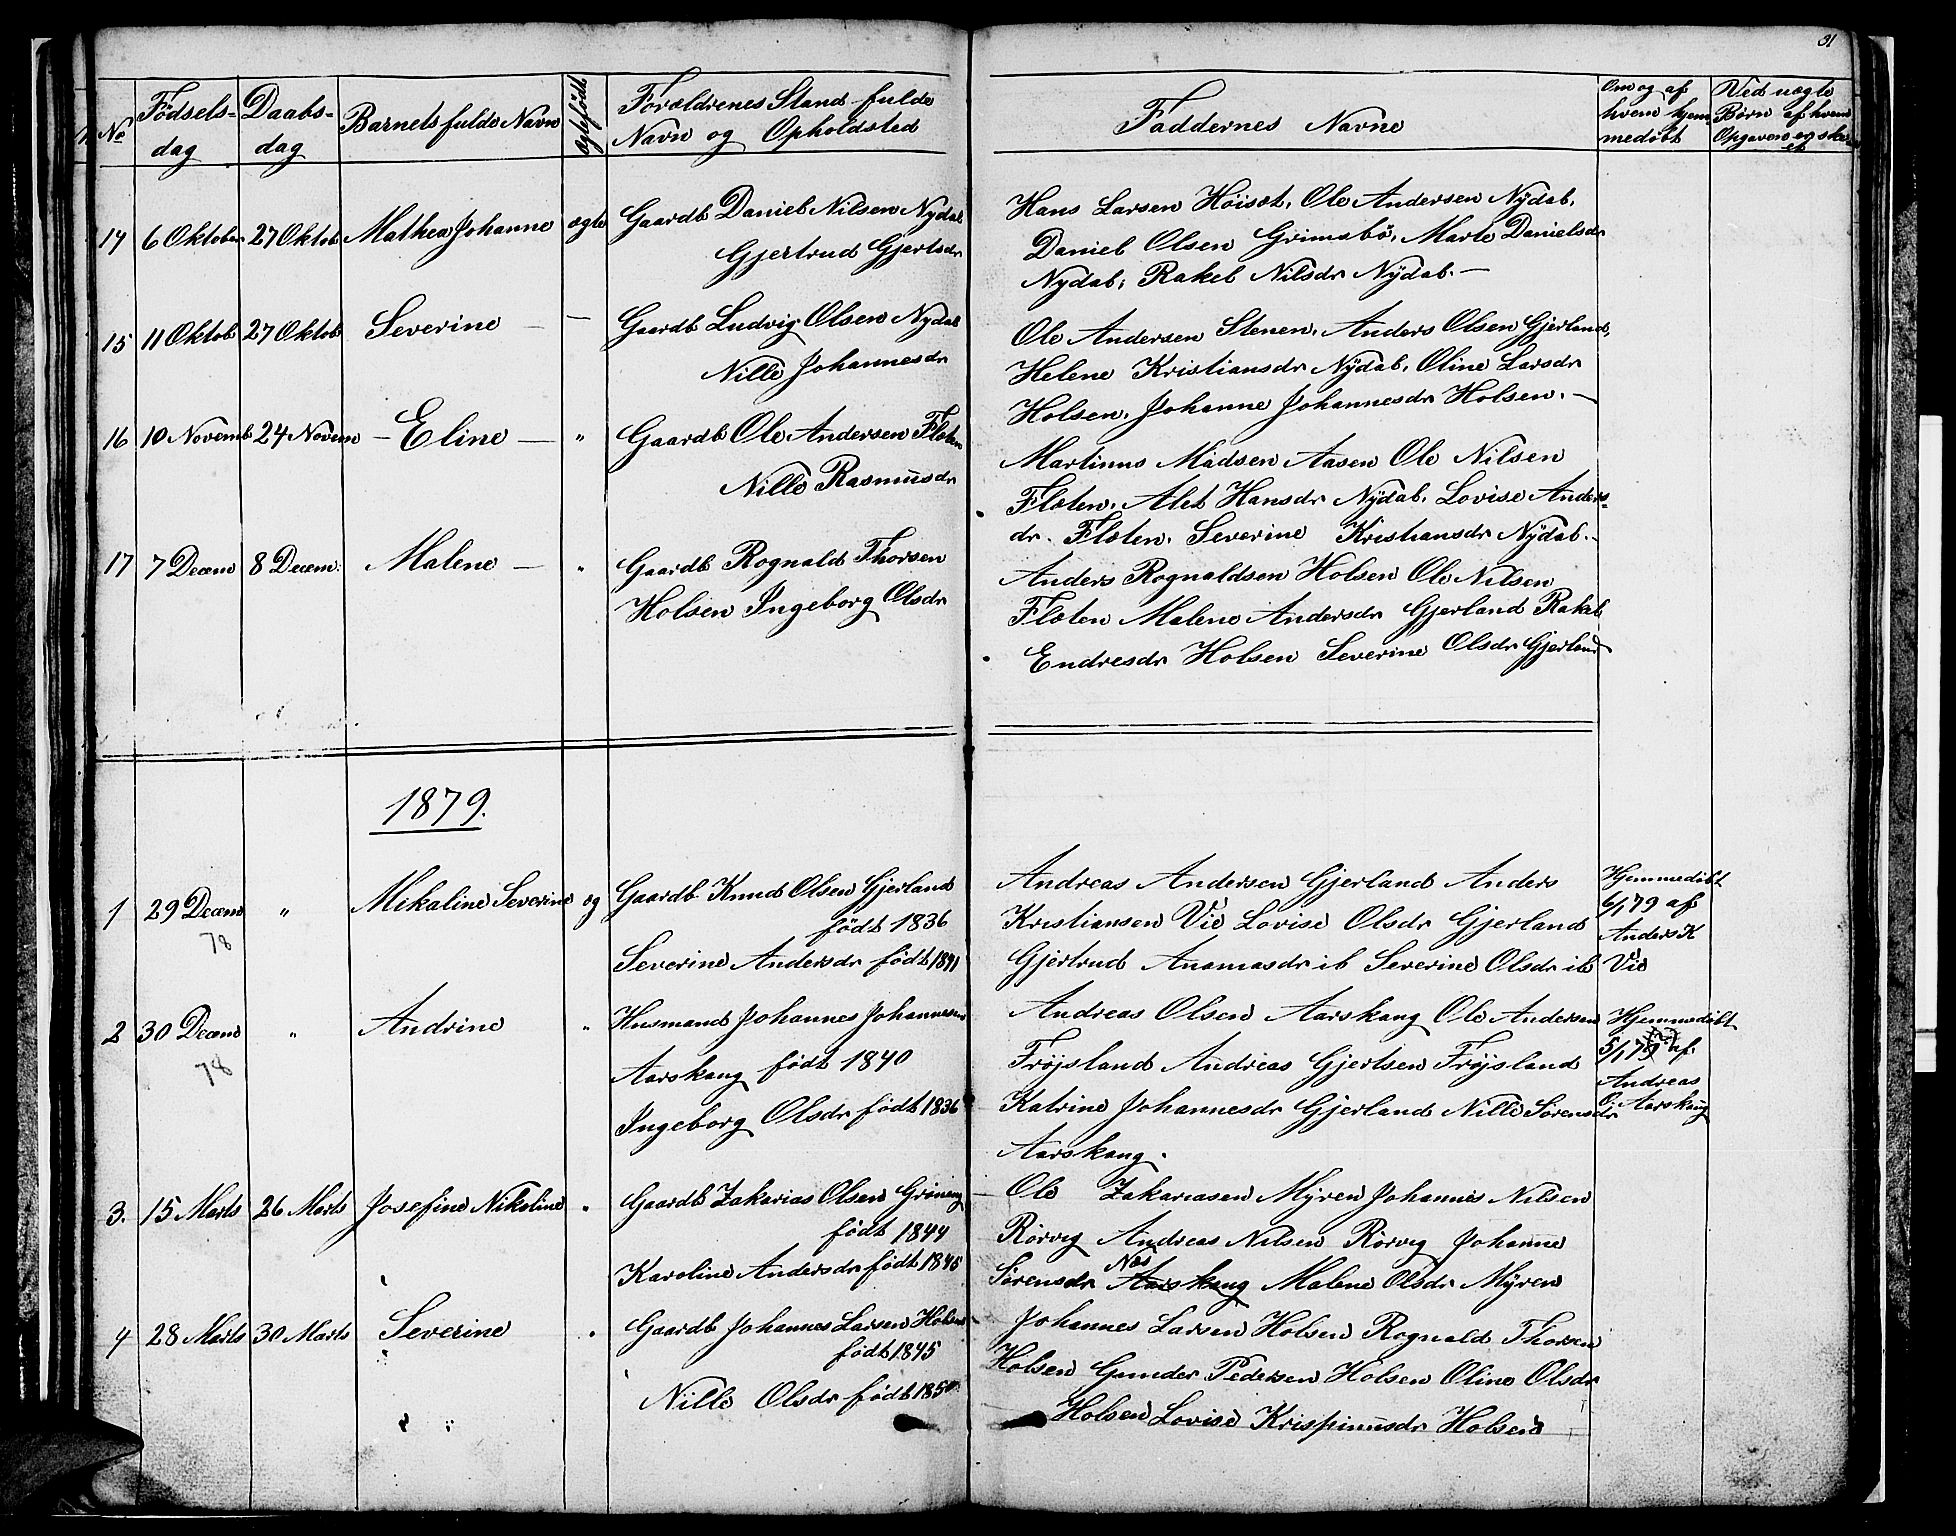 31
No
Fødsels-
dag
Daabs-
dag
Barnets fulde Navn
ægtefødt
Forældrenes Stand fulde
Navn og Opholdsted
Faddernes Navne
Om og af
hvem hjem
medøbt
Ved uægte
Børn af hvem
Opgaven og
14 6 Oktober 27 Oktob Mathea Johanne ægte Gaardb Daniel Nilsen Nydal
Gjertrud Gjertsdr
Hans Larsen Høisæt, Ole Andersen Nydal,
Daniel Olsen Grimsbö, Marte Danielsdr
Nydal, Rakel Nilsdr Nydal. —
15 11 Oktob 27 Oktob Severine — — Gaardb Ludvig Olsen Nydal
Nille Johannesdr
Ole Andersen Stenen, Anders Olsen Gjerland,
Helene Kristiansdr Nydal, Oline Larsdr
Holsen, Johanne Johannesdr Holsen. —
16 10 Novemb 24 Novem — Eline — " Gaardb Ole Andersen Flöten
Nille Rasmusdr
Martinus Madsen Aasen Ole Nilsen
Flöten, Alet Hansdr Nydal, Lovise Anders-
dr. Flöten, Severine Kristiansdr Nydal. -
17 7 Decem 8 Decem. Malene — " Gaardb Rognald Thorsen
Holsen Ingeborg Olsdr
Anders Rognaldsen Holsen Ole Nilsen
Flöten Malene Andersdr Gjerland Rakel
Endresdr Holsen Severine Olsdr Gjerland
1879.
1 29 Decem " Mikaline Severine æg Gaardb Knud Olsen Gjerland
78
født 1836
Severine Andersdr født 1841
Andreas Andersen Gjerland Anders
Kristiansen Vie Lovise Olsdr Gjerland
Gjertrud Ananiasdr ib Severine Olsdr ib
Hjemmedøbt
6/1 79 af
Anders K
Vie
2 30 Decem " Andrine " Husmand Johannes Johannesen
78
Aarskaug født 1840
Ingeborg Olsdr født 1836
Andreas Olsen Aarskaug Ole Andersen
Frøjsland Andreas Gjertsen Frøjsland
Katrine Johannesdr Gjerland Nille Sørensdr
Aarskaug.
Hjemmedøbt
5/1 79 af.
Andreas
O. Aarskaug
3. 15 Marts 26 Marts Josefine Nikoline " Gaardb Zakarias Olsen Grøning
født 1844
Karoline Andersdr født 1845
Ole Zakariasen Myren Johannes Nilsen
Rørvig Andreas Nilsen Rørvig Johanne
Næs
Sørensdr Aarskaug Malene Olsdr Myren
4 28 Marts 30 Marts Severine " Gaardb Johannes Larsen Holsen
født 1845
Nille Olsdr født 1850
Johannes Larsen Holsen Rognald Thorsen
Holsen Gunder Pedersen Holsen Oline Olsdr
Holsen Lovise Krispinusdr Holsen